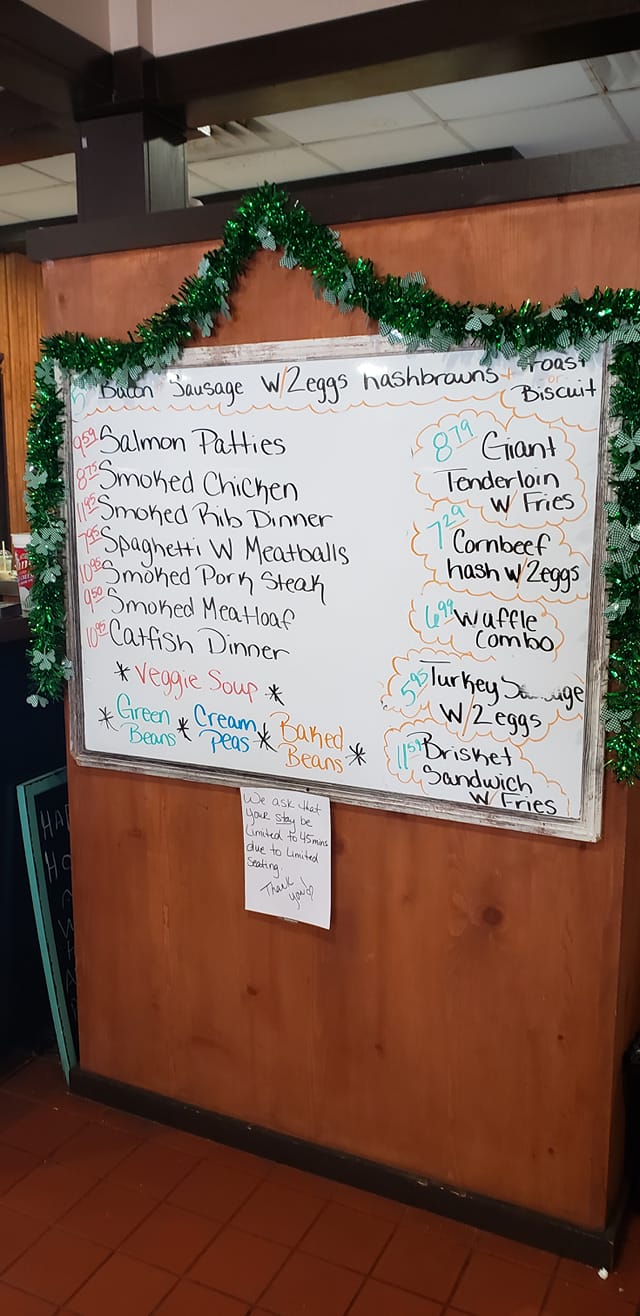 5
Bacon Sausage W/2eggs hashbrowns + Toast
or
Biscuit
9.59 Salmon Patties
8.75 Smoked Chicken
11.95 Smoked Rib Dinner
7.95 Spaghetti W Meatballs
10.95 Smoked Pork Steak
9.50 Smoked Meatloaf
10.95 Catfish Dinner
* Veggie Soup *
* Green Beans * Cream Peas * Baked Beans *
8.79 Giant
Tenderloin
W/ Fries
7.29 Cornbeef
hash w/2eggs
6.99 Waffle
Combo
5.95 Turkey Sausage
W/2eggs
11.59 Brisket
Sandwich
W/ Fries
We ask that
your stay be
Limited to 45mins
due to Limited
Seating.
Thank
you!